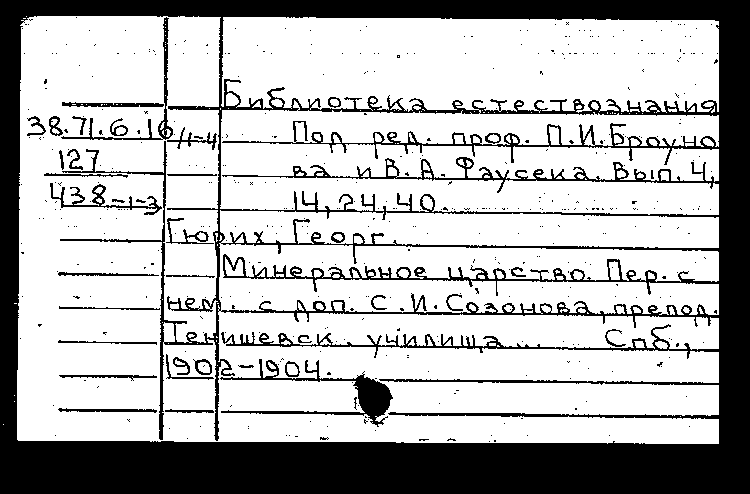 Библиотека естествознания
38.71.6.16/1-4 Под ред. проф. П.И.Броуно
127 ва и В. А. Фаусека. Вып. 4,
438-1-3 14, 24, 40.
Гюрих, Георг.
Минеральное царство. Пер. с
нем. с доп. С. И. Созонова, препод.
Тенишевск. училища... Спб.,
1902-1904.